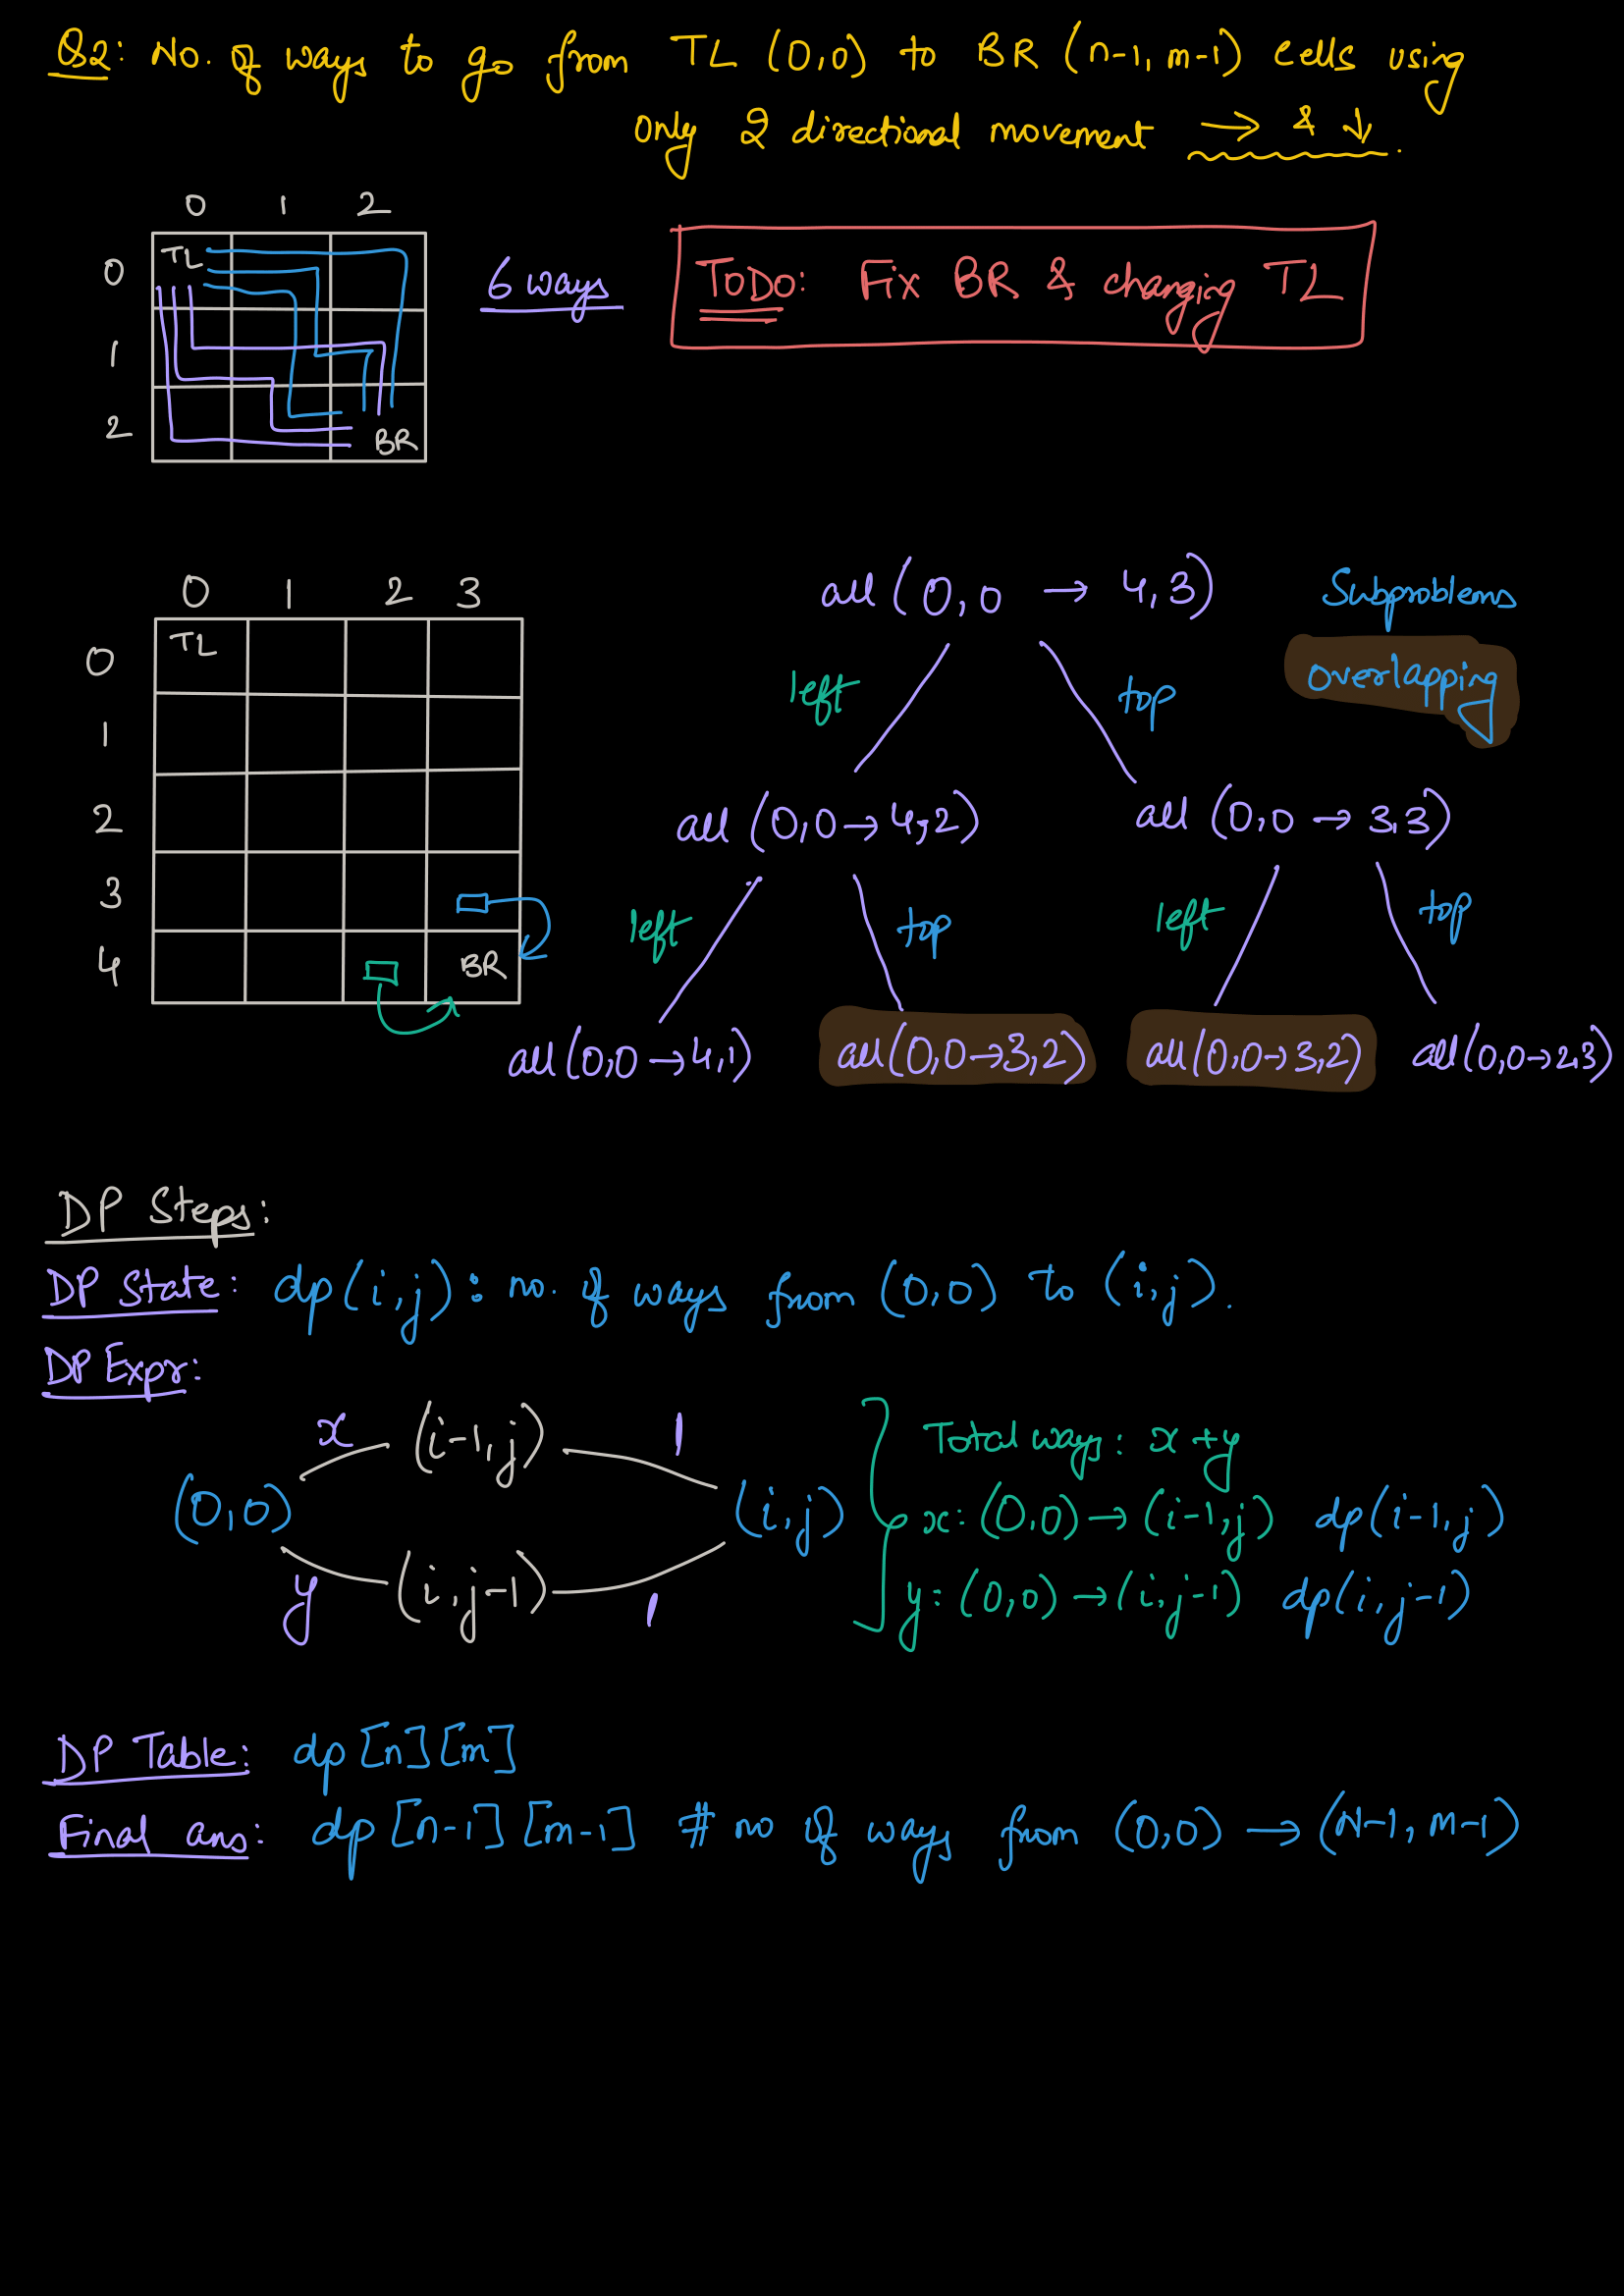 Q2: No. of ways to go from TL (0,0) to BR (n-1, m-1) cells using
only 2 directional movement → & ↓.
0 1 2
0 TL
1
2 BR
6 ways
ToDo: Fix BR & changing TL
0 1 2 3
0 TL
1
2
3
4 BR
all (0,0 → 4,3)
Subproblems
overlapping
left top
all (0,0 → 4,2) all (0,0 → 3,3)
left top left top
all (0,0 → 4,1) all (0,0 → 3,2) all (0,0 → 3,2) all (0,0 → 2,3)
DP Steps:
DP State: dp(i,j): no. of ways from (0,0) to (i,j).
DP Expr:
x (i-1,j) 1
(0,0) (i,j)
y (i,j-1) 1
Total ways: x + y
x: (0,0) → (i-1,j) dp(i-1,j)
y: (0,0) → (i,j-1) dp(i,j-1)
DP Table: dp[n][m]
Final ans: dp[n-1][m-1] # no of ways from (0,0) → (N-1, m-1)